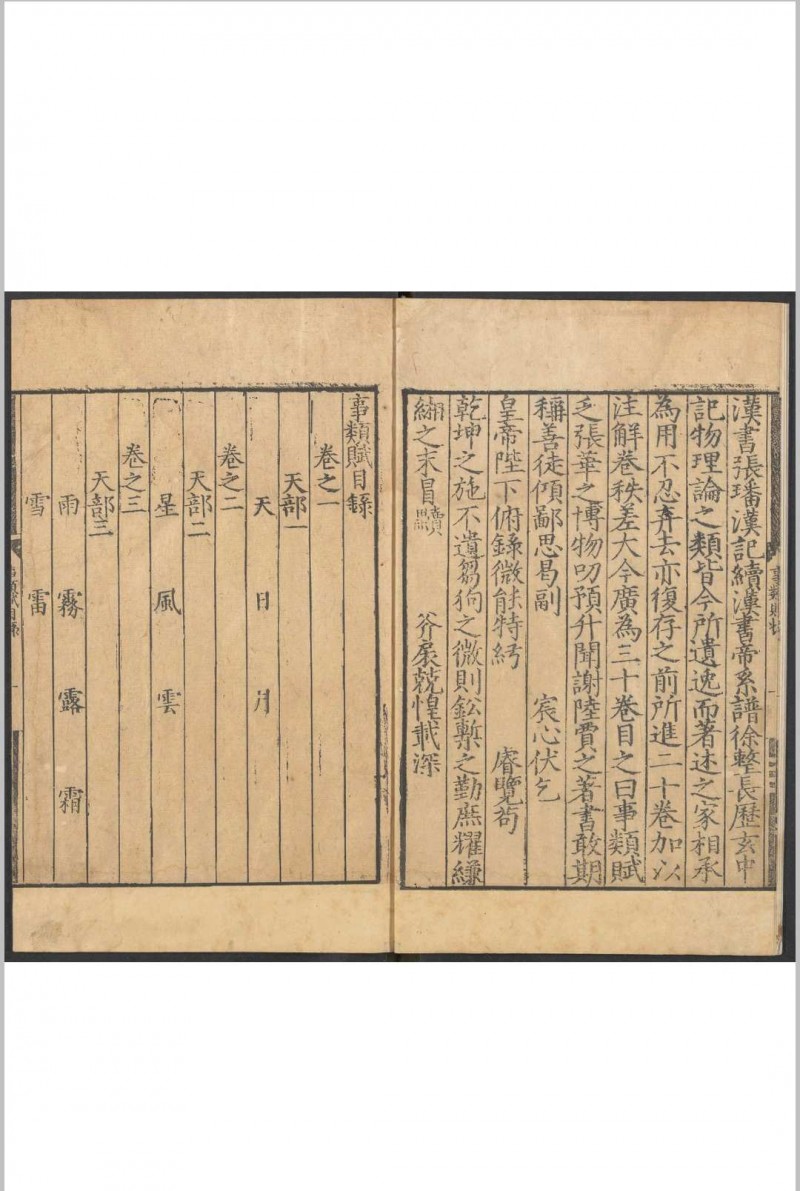 漢書張璠漢記續漢書帝系譜徐整長歷玄中
記物理論之類皆今所遺逸而著述之家相承
為用不忍棄去亦復存之前所進二十卷加以
注解卷秩差大今廣為三十卷目之曰事類賦
乏張華之博物叨預升聞謝陸賈之著書敢期
稱善徒傾鄙思曷副 宸心伏乞
皇帝陛下俯錄微能特紆 睿覽苟
乾坤之施不遺芻狗之微則鈆槧之勤庶耀縑
緗之末冒黷 斧扆兢惶載深
事類賦目錄
卷之一
天部一
天 日 月
卷之二
天部二
星 風 雲
卷之三
天部三
雨 霧 露 霜
雪 雷